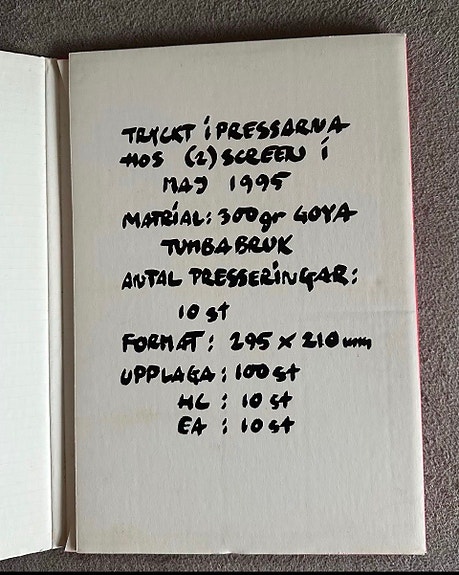 TRYCKT i PRESSARNA
HOS (2) SCREEN i
MAJ 1995
MATRIAL: 300gr GOYA
TUMBA BRUK
ANTAL PRESSERINGAR:
10 st
FORMAT: 295 x 210 mm
UPPLAGA: 100 st
HC : 10 st
EA : 10 st